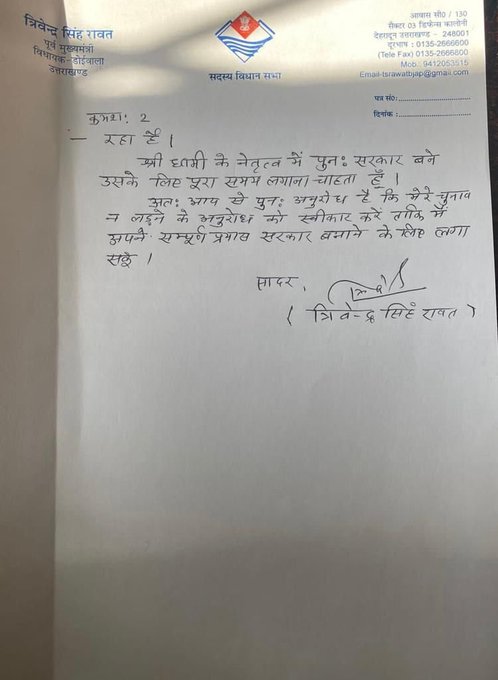 त्रिवेन्द्र सिंह रावत
पूर्व मुख्यमंत्री
विधायक-डोईवाला
उत्तराखण्ड
सदस्य विधान सभा
आवास सी0 / 130
सैक्टर 03 डिफेन्स कालोनी
देहरादून उत्तराखण्ड - 248001
दूरभाष : 0135-2666600
(Tele Fax) 0135-2666600
Mob.: 9412053515
Email-tsrawatbjap@gmail.com
पत्र सं०:
दिनांक :
क्रमशः 2
- रहा हूँ ।
श्री धामी के नेतृत्व में पुनः सरकार बने
उसके लिए पूरा समय लगाना चाहता हूँ ।
अतः आप से पुनः अनुरोध है कि मेरे चुनाव
न लड़ने के अनुरोध को स्वीकार करें ताकि मैं
अपने सम्पूर्ण प्रयास सरकार बनाने के लिए लगा
सकूँ ।
सादर,
( त्रिवेन्द्र सिंह रावत )